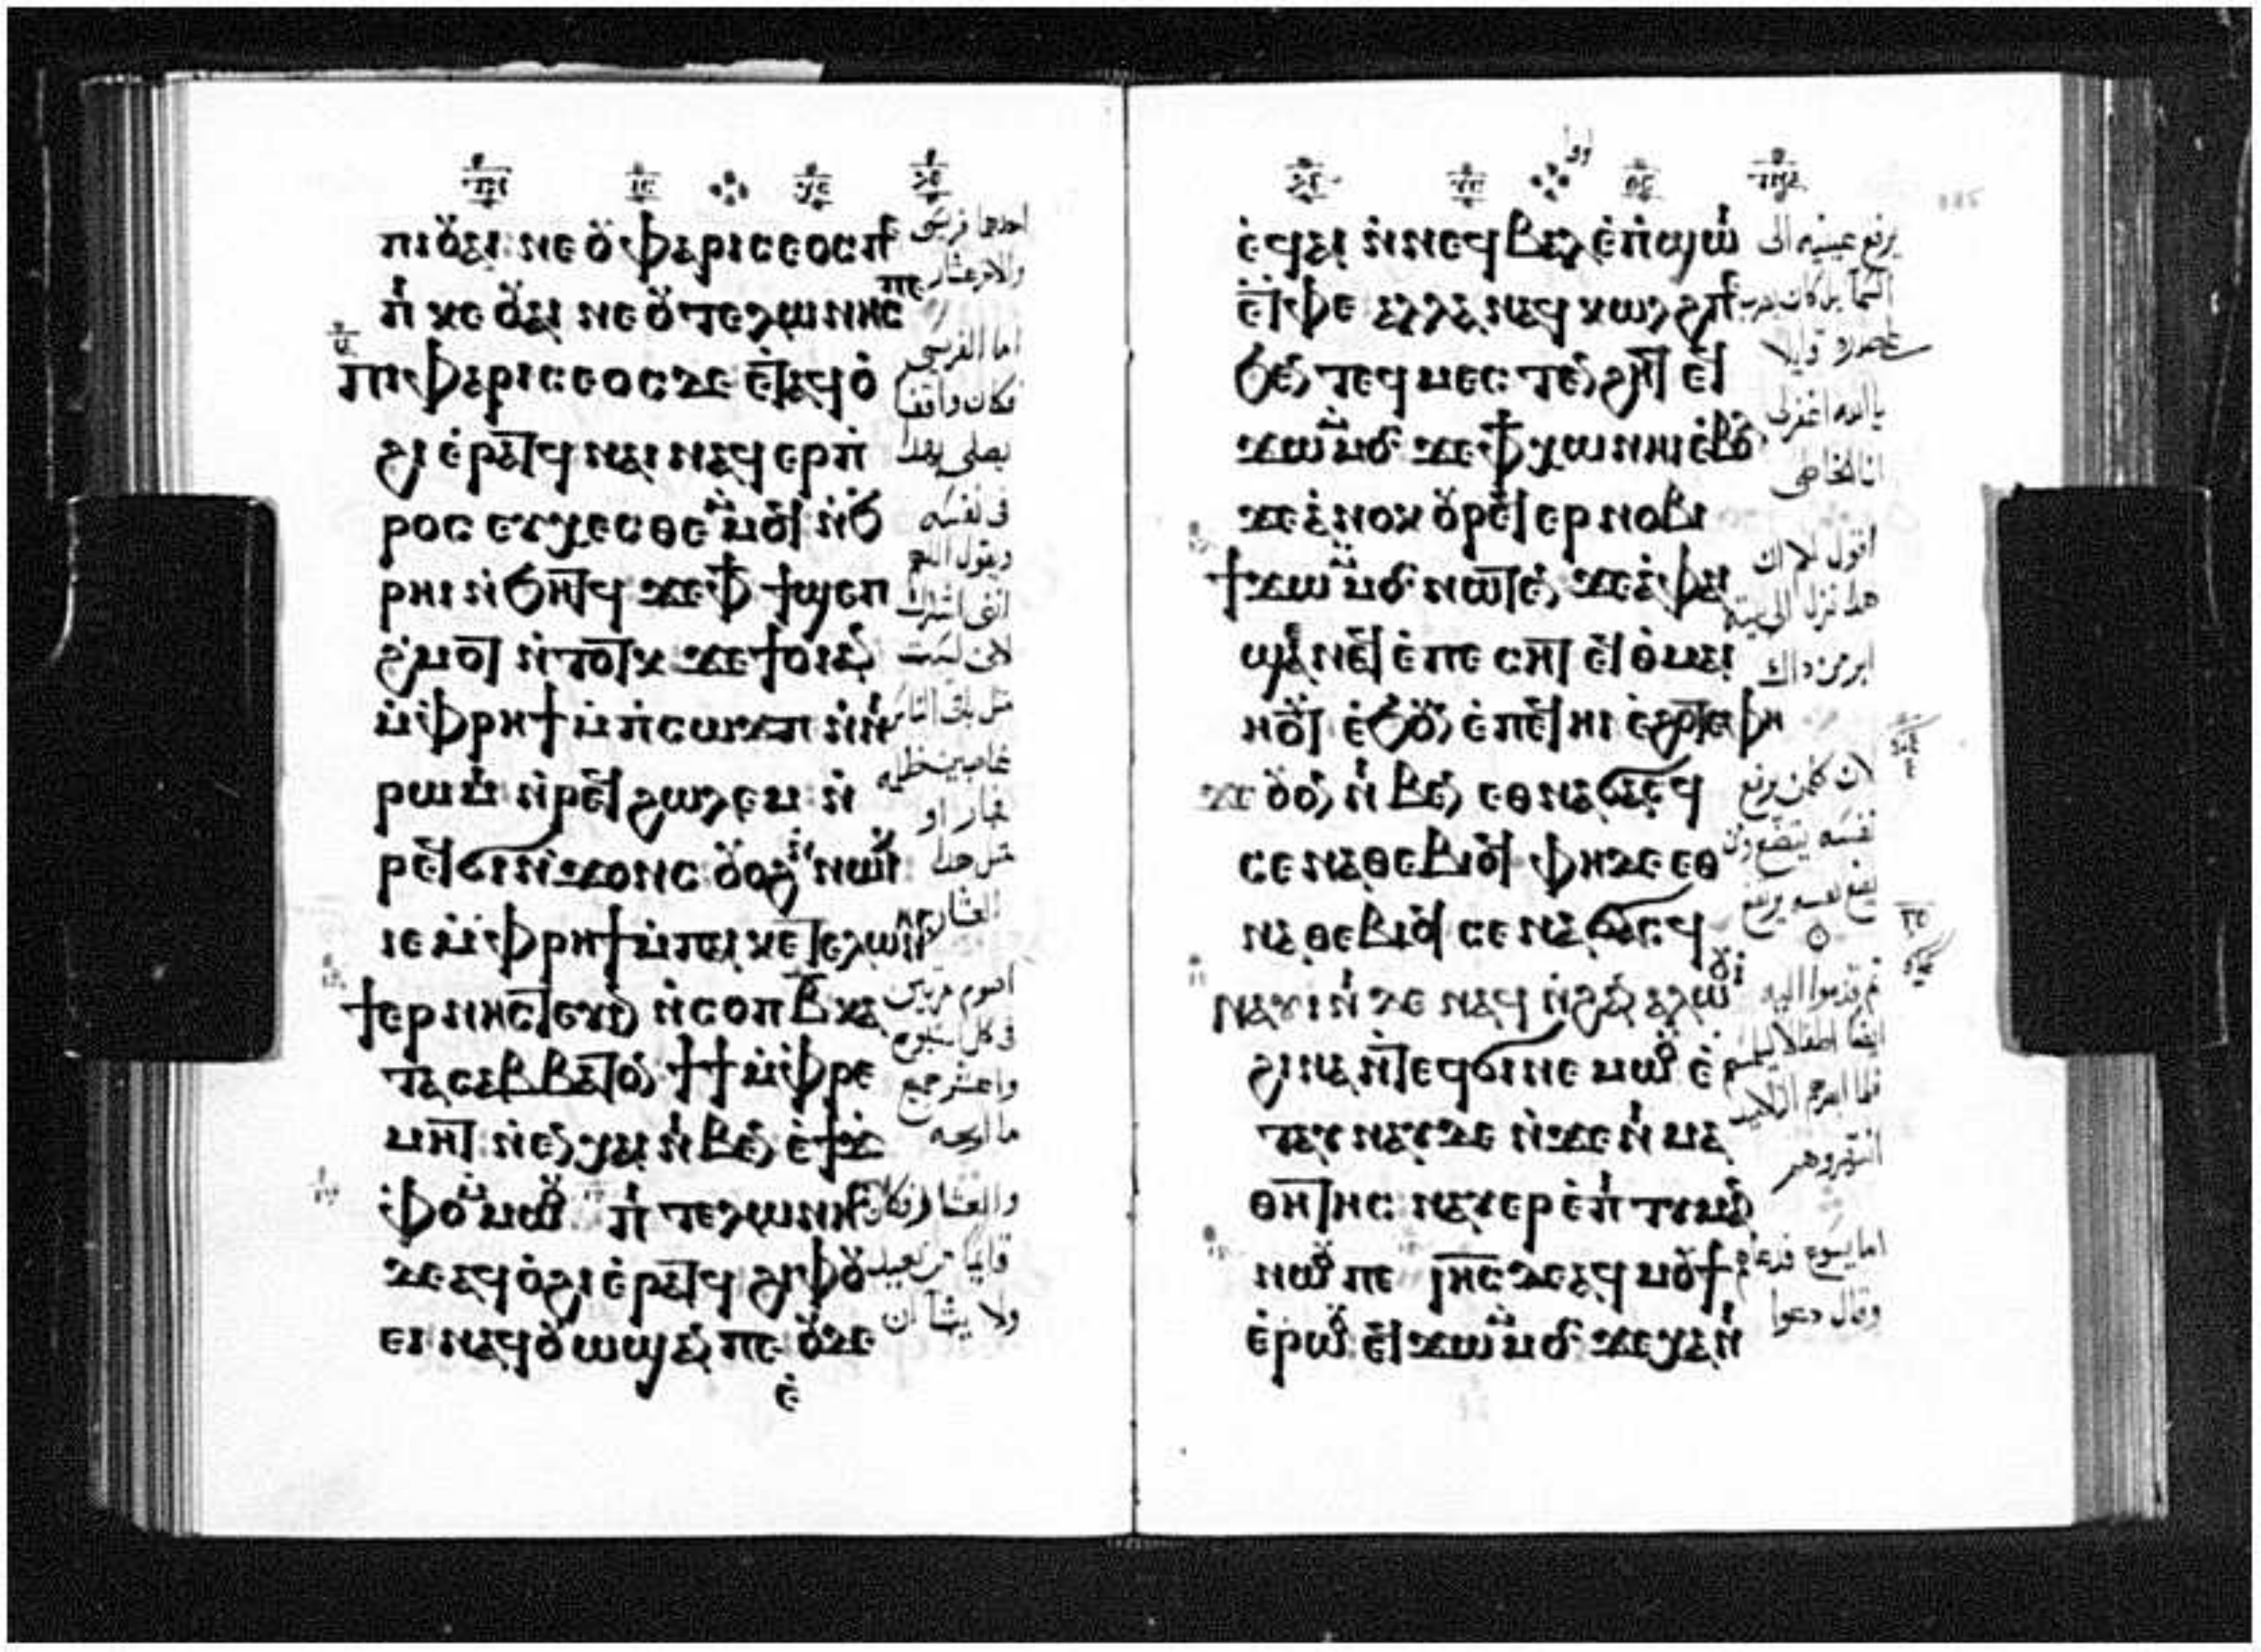 ⲡⲓⲟ̈ⲁⲓ ⲛⲉ ⲟ̈ ⲫⲁⲣⲓⲥⲉⲟⲥ ⲡⲉ
ⲡ̇ ⲕⲉ ⲟ̈ⲁⲓ ⲛⲉ ⲟ̈ ⲧⲉⲗⲱⲛⲏⲥ ⲡⲉ
ⲡⲓⲫⲁⲣⲓⲥⲉⲟⲥ ⲇⲉ ⲉ̇ⲧⲁϥⲟ̇
ϩⲓ ⲉ̇ⲣⲁⲧϥ ⲛⲁⲓ ⲛⲁϥ ⲉⲣⲡ̇
ⲣⲟⲥ ⲉⲩⲭⲉⲥⲑⲉ ⲙ̇ⲙⲟ̈ ⲛ̇ϧ
ⲣⲏⲓ ⲛ̇ϧⲏⲧϥ ϫⲉ ⲫϯ ϯϣⲉⲡ
ϩ̇ⲙⲟⲧ ⲛ̇ⲧⲟⲧⲕ ϫⲉ ϯⲟⲓ ⲁⲛ
ⲙ̇ⲫⲣⲏϯ ⲙ̇ⲡ̇ⲥⲱϫⲡ ⲛ̇ⲛⲓ
ⲣⲱⲙⲓ ⲛ̇ⲣⲉϥ ϩⲱⲗⲉⲙ ⲛ̇
ⲣⲉϥϭⲓ ⲛ̇ϫⲟⲛⲥ ⲟ̈ⲟϩ ⲛ̇ⲛⲱⲓⲕ
ⲓⲉ ⲙ̇ⲫⲣⲏϯ ⲙ̇ⲡⲁⲓ ⲕⲉ ⲧⲉⲗⲱⲛⲏⲥ
ϯⲉⲣ ⲛⲏⲥⲧⲉⲩⲓⲛ ⲛ̇ⲥⲟⲡ ⲃ̅ ⲕⲁ
ⲧⲁ ⲥⲁⲃⲃⲁⲧⲟⲛ ϯϯ ⲙ̇ⲫⲣⲉ
ⲙⲏⲧ ⲛ̇ⲉⲛⲭⲁⲓ ⲛⲓⲃⲉⲛ ⲉ̇ϯϫ
ⲫⲟ ⲙ̇ⲙⲱⲟ̈ ⲡⲓ ⲧⲉⲗⲱⲛⲏⲥ
ⲇⲉ ⲁϥⲟ̇ϩⲓ ⲉ̇ⲣⲁⲧϥ ϩⲓ ⲫⲟ̈
ⲉⲓ ⲛⲁϥⲟ̈ⲱϣ ⲁⲛ ⲡⲉ ⲟ̈ⲇⲉ
ⲉ̇
احدهما فريسى
والاخر عشار
اما الفريسى
فكان واقفا
يصلى بهذا
فى نفسه
ويقول اللهم
انى اشكرك
لانى لست
مثل باقى الناس
او
مثل هذا
العشار
اصوم مرتين
فى كل اسبوع
واعشر جميع
ما
والعشار فكان
قايما من بعيد
ولا يشا ان
ⲉ̇ϥⲁⲓ ⲛ̇ⲛⲉϥ ⲃⲁⲗ ⲉ̇ⲡ̇ϣⲱⲓ
ⲉ̇ⲧⲫⲉ ⲁⲗⲗⲁ ⲛⲁϥ ⲕⲱⲗϩ ⲡⲉ
ϧⲉⲛ ⲧⲉϥ ⲙⲉⲥⲧⲉⲛϩⲏⲧ ⲉϥ
ϫⲱ ⲙ̇ⲙⲟⲥ ϫⲉ ⲫϯ ⲭⲱ ⲛⲏⲓ ⲉ̇ⲃⲟⲗ
ϫⲉ ⲁ̇ⲛⲟⲕ ⲟ̈ⲣⲉϥ ⲉⲣ ⲛⲟⲃⲓ
ϯϫⲱ ⲙ̇ⲙⲟⲥ ⲛⲱⲧⲉⲛ ϫⲉ ⲁ̇ ⲫⲁⲓ
ϣⲉ ⲛⲁϥ ⲉ̇ⲡⲉⲥⲏⲧ ⲉϥⲑⲙⲁⲓ
ⲏⲟ̈ⲧ ⲉ̇ϧⲟ̈ⲛ ⲉ̇ⲡⲉϥ ⲏⲓ ⲉ̇ϩⲟⲧⲉ ⲫⲏ
ϫⲉ ⲟ̈ⲟⲛ ⲛⲓⲃⲉⲛ ⲉⲑⲛⲁϭⲁⲥϥ
ⲥⲉ ⲛⲁⲑⲉⲃⲓⲟϥ ⲫⲏ ⲇⲉ ⲉⲑ
ⲛⲁⲑⲉⲃⲓⲟϥ ⲥⲉ ⲛⲁϭⲁⲥϥ
ⲛⲁⲩⲓⲛⲓ ⲇⲉ ⲛⲁϥ ⲛ̇ϩⲁⲛ ⲁⲗⲱⲟ̈ⲓ
ϩⲓⲛⲁ ⲛ̇ⲧⲉϥϭⲓ ⲛⲉⲙⲱⲟ̈ ⲉ̇
ⲧⲁⲩ ⲛⲁⲩ ⲇⲉ ⲛ̇ϫⲉ ⲛⲓ ⲙⲁ
ⲑⲏⲧⲏⲥ ⲛⲁⲩⲉⲣ ⲉ̇ⲡⲓⲧⲓⲙⲁⲛ
ⲛⲱⲟ̈ ⲡⲉ ⲓⲏ̅ⲥ ⲇⲉ ⲁϥ ⲙⲟ̈ϯ
ⲉ̇ⲣⲱⲟ̈ ⲉϥϫⲱ ⲙ̇ⲙⲟⲥ ϫⲉ ⲭⲁⲛⲓ
يرفع عينيه الى
السما بل كان يضرب
صدره قايلا
يا الله اغفرلى
انا الخاطى
اقول لكم ان
هذا نزل الى بيته
ابر من ذاك
لان كلمن يرفع
نفسه يتضع ومن
يضع نفسه يرتفع
ثم قدموا اليه
ايضا اطفالا ليلمسهم
فلما ابصرهم التلاميذ
انتهروهم
اما يسوع فدعاهم
وقال دعوا